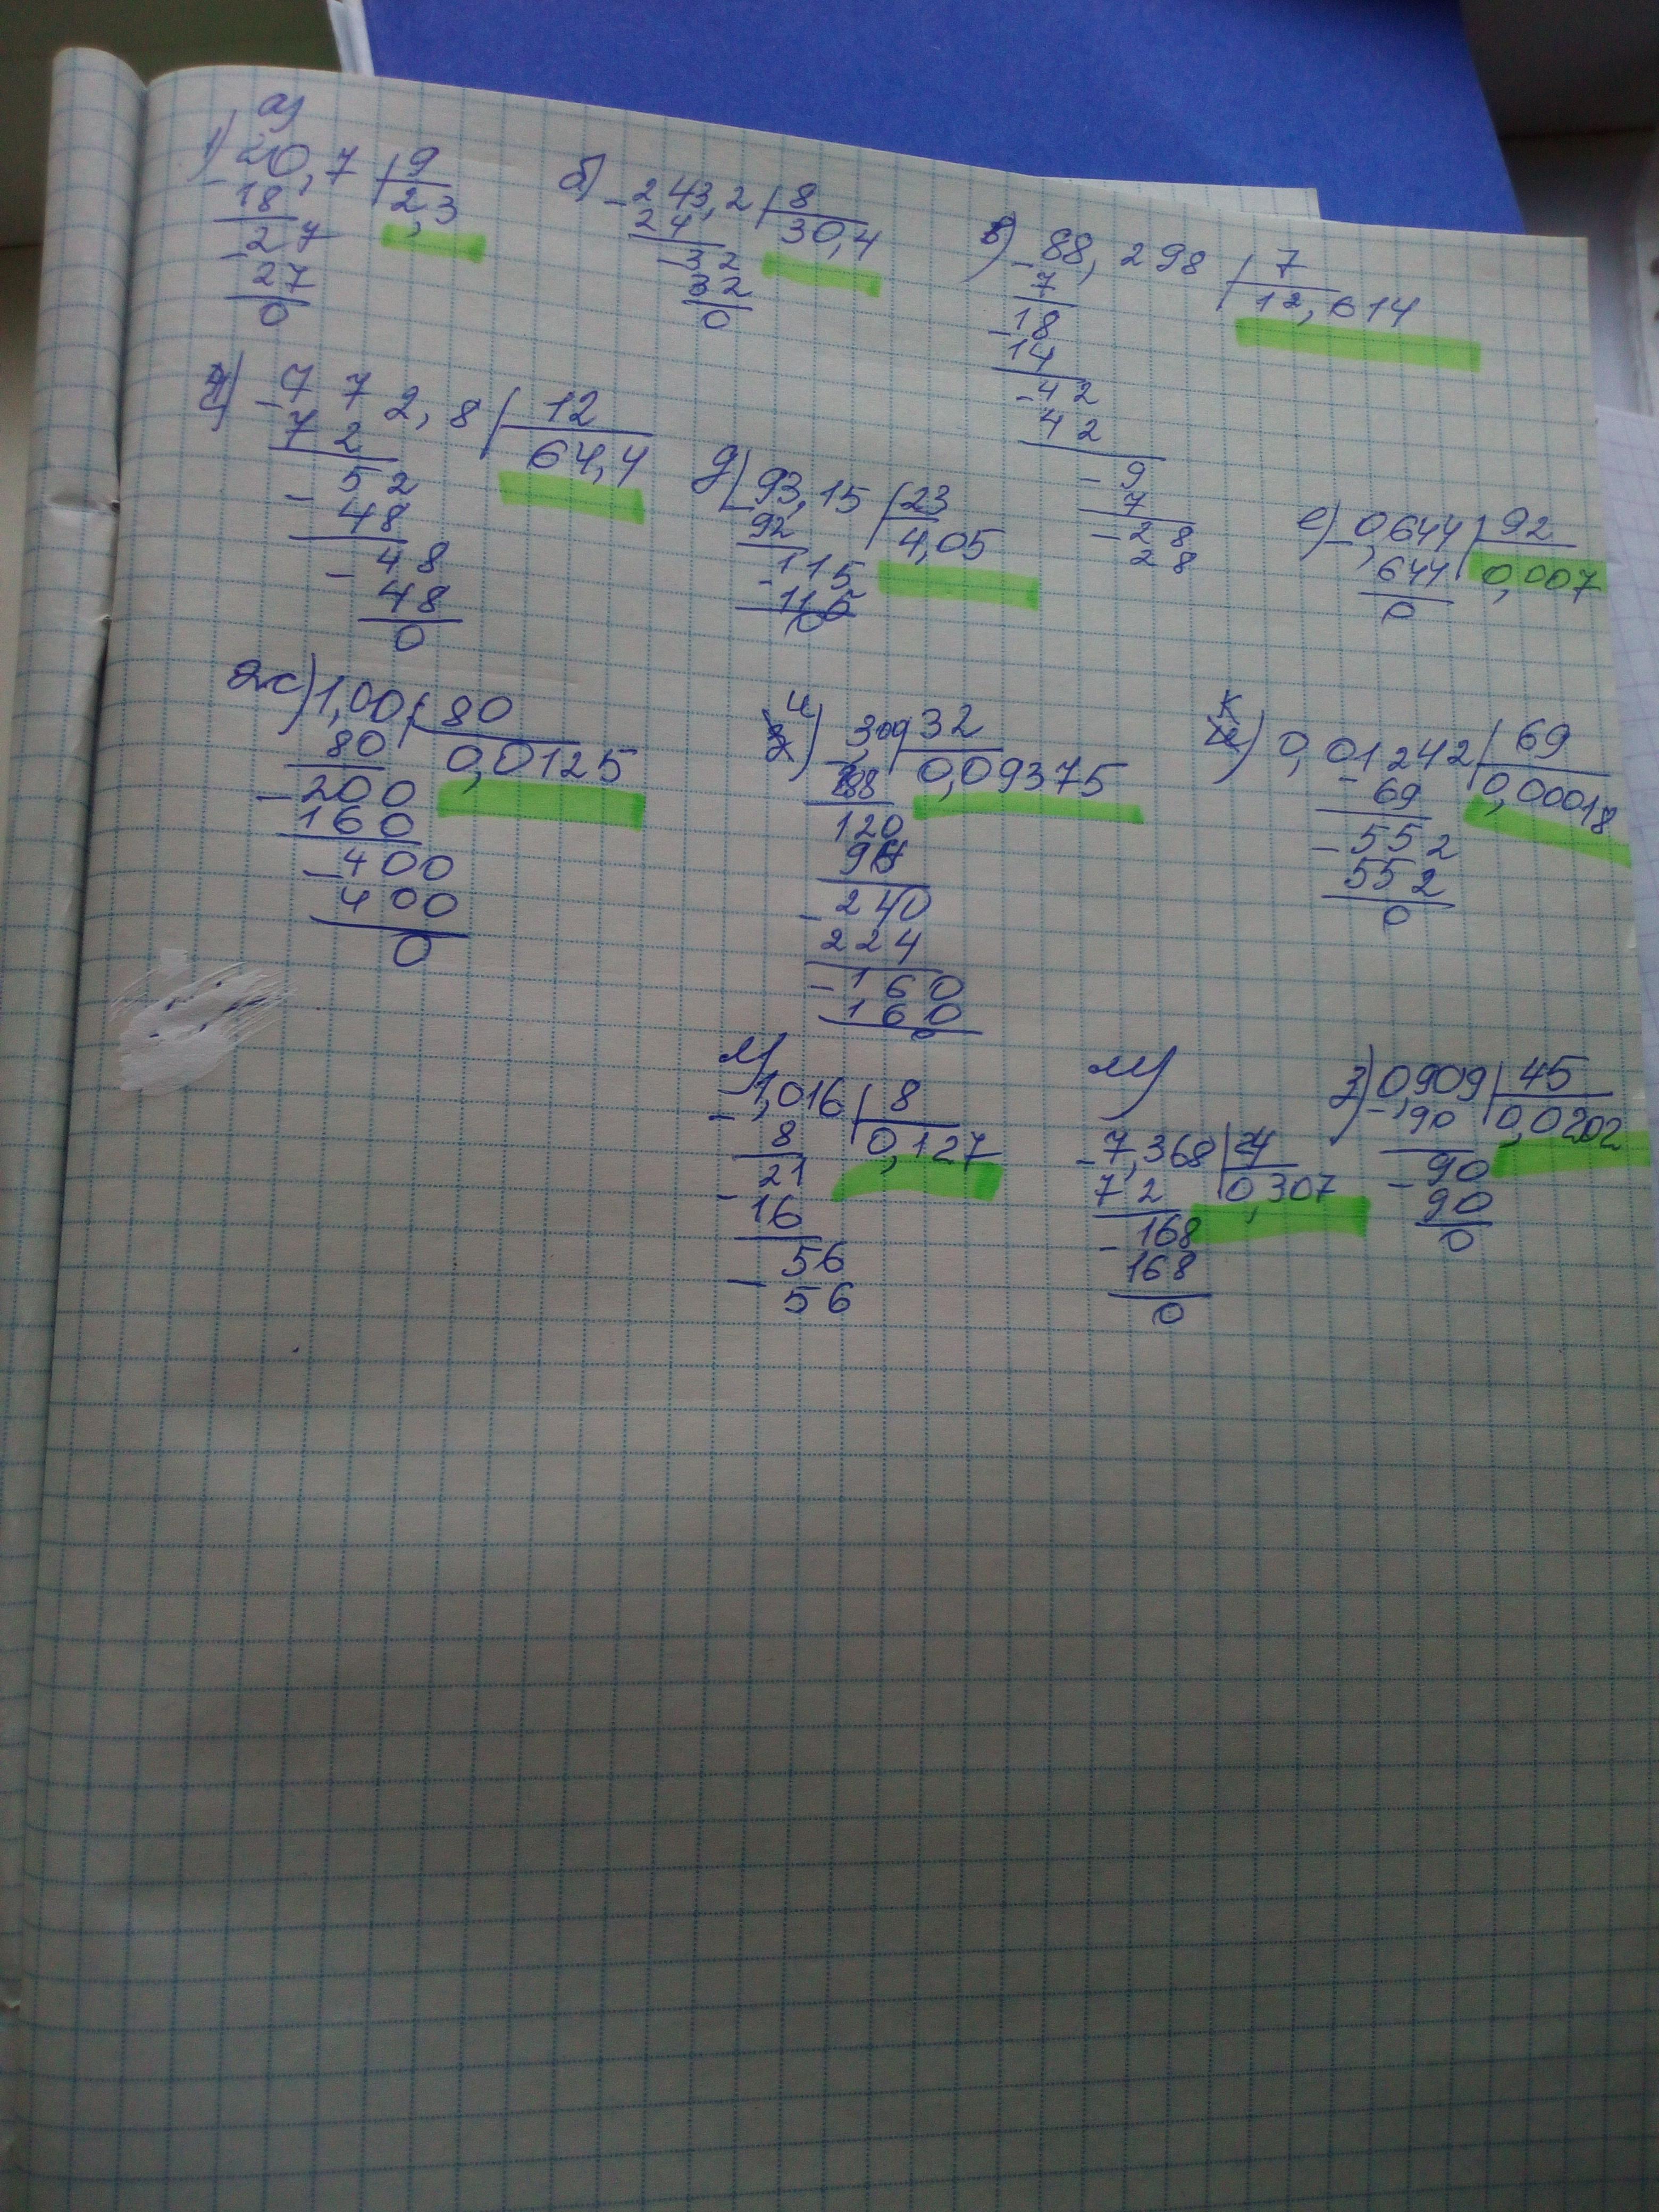 а)
1) - 20,7 | 9
18 | 2,3
- 27
27
0
б) - 243,2 | 8
24 | 30,4
- 32
32
0
в) - 88,298 | 7
7 | 12,614
- 18
14
- 42
42
- 9
7
- 28
28
- 772,8 | 12
72 | 64,4
- 52
48
- 48
48
0
д) - 93,15 | 23
92 | 4,05
- 115
115
0
е) - 0,644 | 92
644 | 0,007
0
ж) 1,00 | 80
80 | 0,0125
- 200
160
- 400
400
0
и) - 3,00 | 32
288 | 0,09375
120
96
- 240
224
- 160
160
0
к) 0,01242 | 69
- 69 | 0,00018
- 552
552
0
л)
- 1,016 | 8
8 | 0,127
- 21
16
- 56
56
м)
- 7,368 | 24
72 | 0,307
- 168
168
0
з) 0,909 | 45
- 90 | 0,0202
- 90
90
0